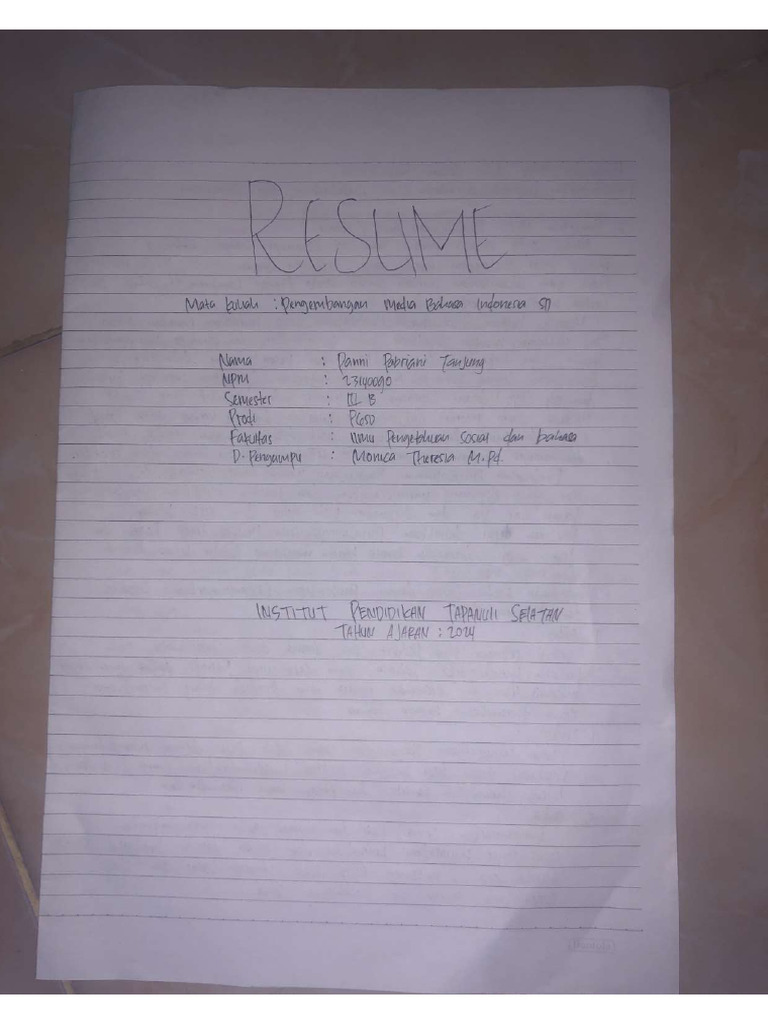 RESUME
Mata kuliah : Pengembangan Media Bahasa Indonesia SD
Nama : Panni Pabriani Tanjung
NPM : 23140090
Semester : III B
Prodi : PGSD
Fakultas : Ilmu Pengetahuan Sosial dan bahasa
D. Pengampu : Monica Theresia M.Pd.
INSTITUT PENDIDIKAN TAPANULI SELATAN
TAHUN AJARAN : 2024